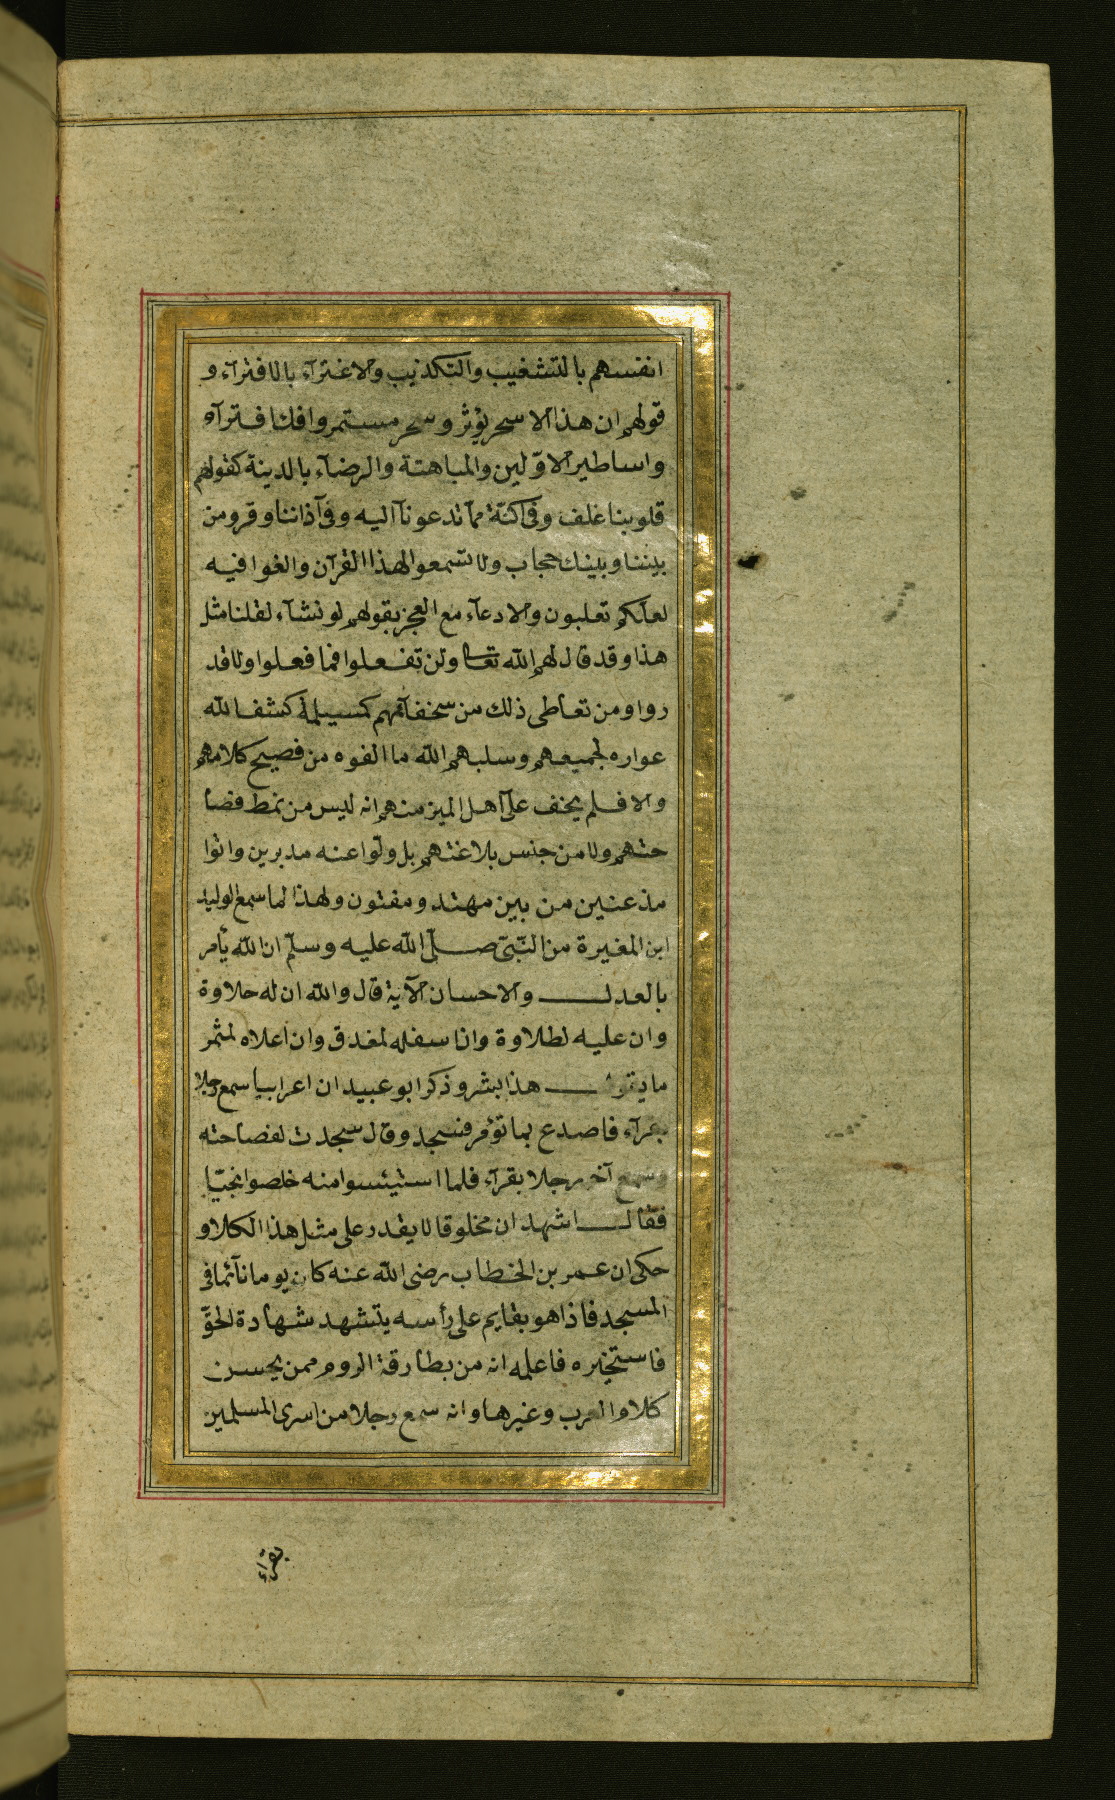 انفسهم بالتشغيب والتكذيب والاغترآء بالافترآء و
قولهم ان هذا الا سحر يؤثر وسحر مستمر وافك افترآه
واساطير الاوّلين والمباهتة والرضآء بالدينة كقولهم
قلوبنا غلف وفى اكنّة ممّا تدعونآ اليه وفى آذاننا وقر ومن
بيننا وبينك حجاب ولا تسمعوا لهذا القرآن والغوا فيه
لعلّكم تغلبون والادعآء مع العجز بقولهم لو نشآء لقلنا مثل
هذا وقد قال لهم الله تعالى ولن تفعلوا فما فعلوا ولا قد
روا ومن تعاطى ذلك من سخفآئهم كمسيلمة كشف الله
عواره لجميعهم وسلبهم الله ما الفوه من فصيح كلامهم
والا فلم يخف على اهل الميز منهم انه ليس من نمط فصا
حتهم ولا من جنس بلاغتهم بل ولّوا عنه مدبرين واتوا
مذعنين من بين مهتد ومفتون ولهذا لما سمع الوليد
ابن المغيرة من النّبىّ صلّى الله عليه وسلّم ان الله يأمر
بالعدل والاحسان الآية قال والله ان له حلاوة
وان عليه لطلاوة وان اسفله لمغدق وان اعلاه لمثمر
ما يقول هذا بشر وذكر ابو عبيد ان اعرابيا سمع رجلا
يقرآء فاصدع بما تؤمر فسجد وقال سجدت لفصاحته
وسمع آخر رجلا يقرآء فلما استيئسوا منه خلصوا نجيّا
فقال اشهد ان مخلوقا لا يقدر على مثل هذا الكلام و
حكى ان عمر بن الخطاب رضى الله عنه كان يوما نآئما فى
المسجد فاذا هو بقايم على رأسه يتشهد شهادة الحقّ
فاستخبره فاعلمه انه من بطارقة الروم ممن يحسن
كلام العرب وغيرها وانه سمع رجلا من اسرى المسلمين
يقرآء